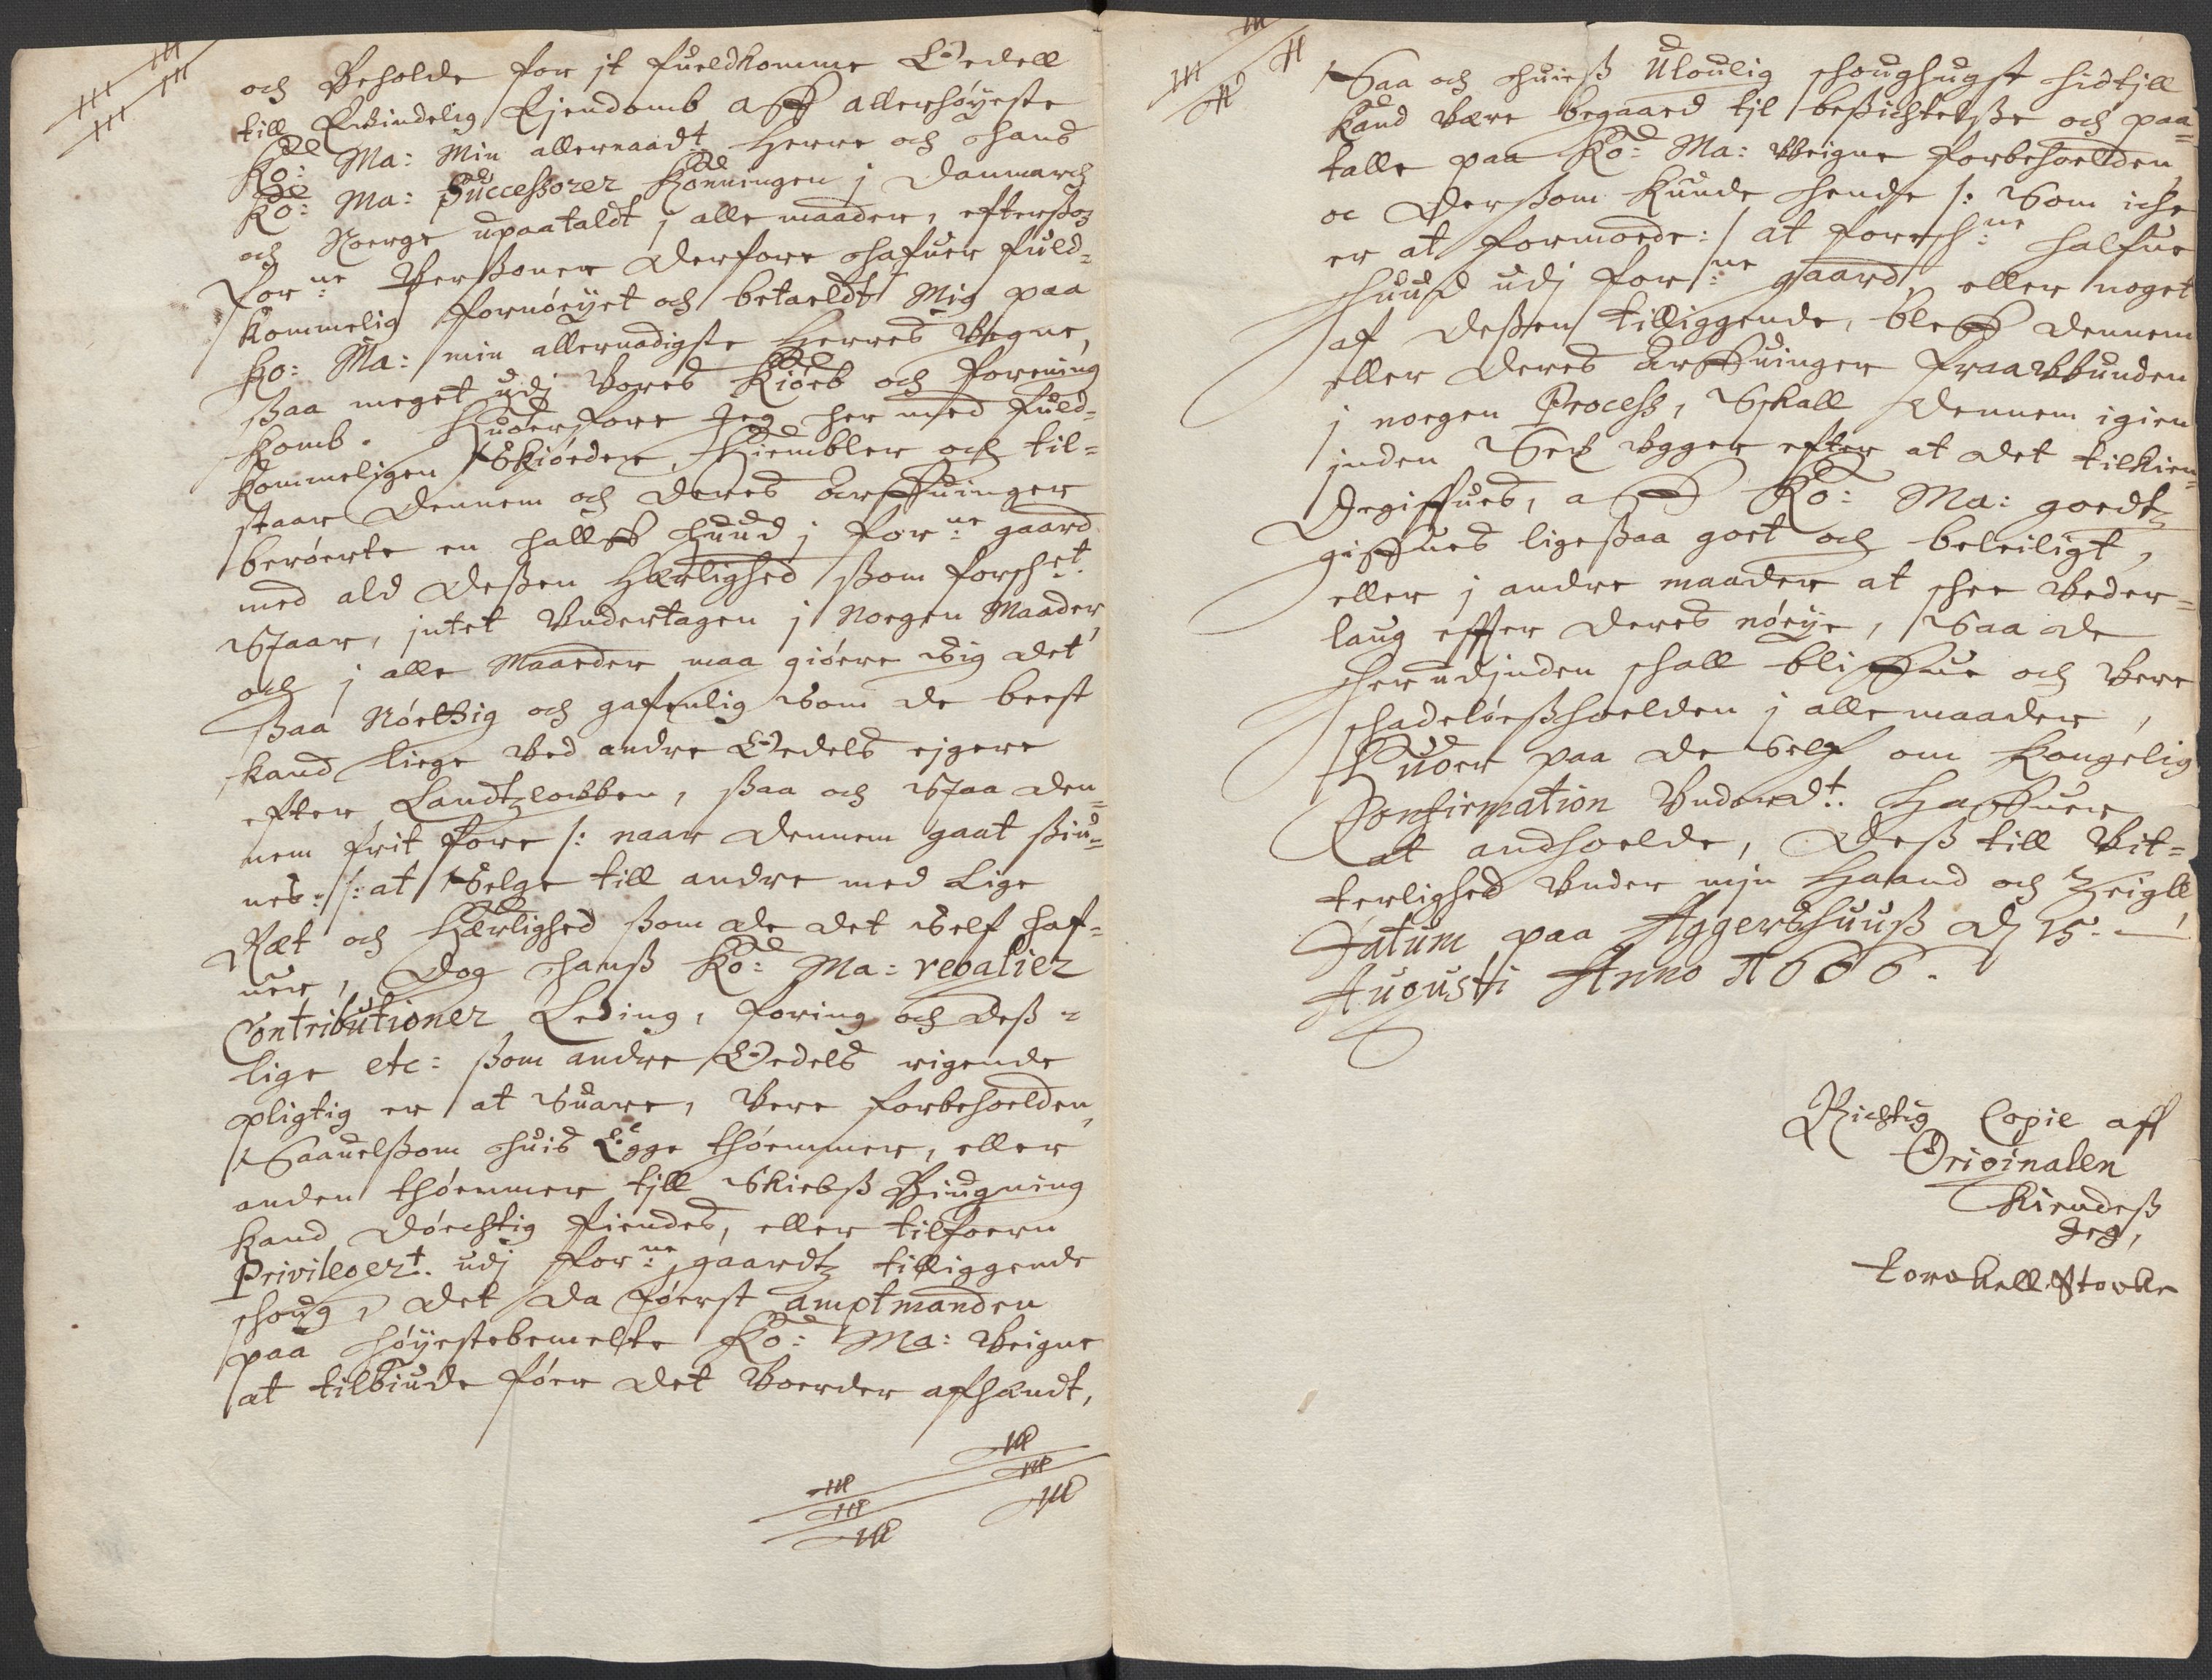 och Beholde for it fueldkomme Oedell
till Ewindelig Ejendomb aff allerhøyeste
Ko: Ma: Min allernaadt Herre och Hans
Ko: Ma: Successorer Konningen j Danmarch
och Norge upaataldt j alle maader, eftersom
for:ne Persøner derfore hafuer fuld=
kommelig fornøeyet och betaeldt Mig paa
Ko: Ma: min allernadigste Herres Vegne,
ssaa meget udj Vores Kiøeb och forening
komb. Huorfore Jeg her med fuld=
kommeligen Skiøeder, Hiembler och til=
staar Dennem och deres Arffuinger
berøerte en hallff Huud j for:ne gaard
med ald dessen Herlighed ssom forsch:et
Staar, intet Undertagen j Noegen Maader,
och j alle Maader maa giøere Sig det
ssaa Nøttig och gafnlig Som de beest
kand Liege Ved andre Oedels ejgere
efter Landtzlowen, ssaa och Staa den=
nem frit fore /: naar dennem gaat siu=
nes :/ at Selge till andre med Lige
Ræt och Herlighed ssom de det Self haf=
uer, Dog Hanss Ko: Ma: regalier
Contributioner Leding, foring och dess=
lige etc: ssom andre Oedels eigende
pligtig er at Suare, Vere forbeholden,
Saauelssom Huis Egge thømmer, eller
anden thømmer till Skiebss Biugning
kand døechtig findes, eller tilforn
Privilegert. udj for:ne gaardtz tilliggende
schoug, det da føerst amptmanden
paa høyestebemelte Ko: Ma: Veigne
at tilbiude føer det Vorder afhændt,
Saa och Huiess Uloulig schoughugst hidtill
kand Være begaaed til bessichtelsse och paa=
talle paa Ko: Ma: Veigne forbeholden,
oc dersom kunde hende /: Som iche
er at formode :/ at forsch:ne halfue
huud udj for:ne gaard, eller noget
af dessen tilliggende, bleff dennem
eller deres Arffuinger fraavunden
j noegen Process, Skall dennem igien
inden Sex Uger efter at det tilkien=
degiffues, aff Ko: Ma: goedtz
giffues ligessaa goet och beleiligt,
eller j andre maader at schee Veder=
laug effter deres nøeye, Saa de
herudjnden schall bliffue och Vere
schadeløessholden j alle maader,
Huor paa de Self om Kongelig
Confirmation Underdt. Haffuer
at andholde, Dess till Vit=
terlighed Under min Haand och Zeigll
Datum paa Aggershuuss d 15.
Augusti Anno 1666.
Richtig Copie aff
Originalen
Kiendess
Jeg,